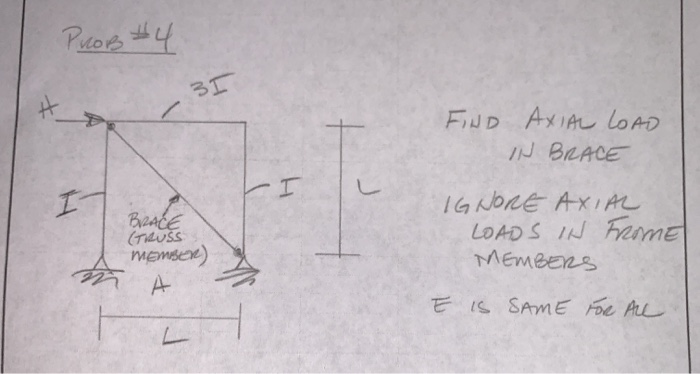 PROB #4
3I
H
FIND AXIAL LOAD
IN BRACE
I
I
L
IGNORE AXIAL
LOADS IN FRAME
MEMBERS
BRACE
(TRUSS
MEMBER)
A
E IS SAME FOR ALL
L